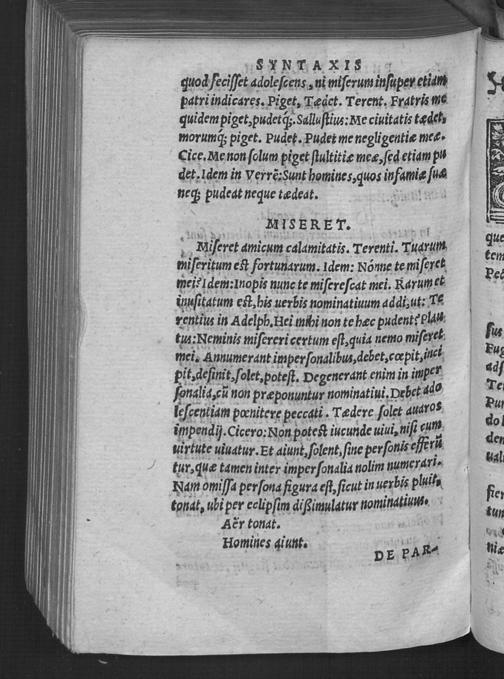 SYNTAXIS
quod fecisset adolescens, ni miserum insuper etiam
patri indicares. Piget, Tædet. Terent. Fratris me
quidem piget, pudetq́;. Sallustius: Me ciuitatis tædet,
morumq́; piget. Pudet. Pudet me negligentiæ meæ.
Cice. Me non solum piget stultitiæ meæ, sed etiam pu
det. Idem in Verrē: Sunt homines, quos infamiæ suæ
neq; pudeat neque tædeat.
MISERET.
Miseret amicum calamitatis. Terenti. Tuarum
miseritum est fortunarum. Idem: Nónne te miseret
mei? Idem: Inopis nunc te miserescat mei. Rarum et
inusitatum est, his uerbis nominatiuum addi, ut: Te
rentius in Adelph. Hei mihi non te hæc pudent? Plau
tus: Neminis misereri certum est, quia nemo miseret
mei. Annumerant impersonalibus, debet, cœpit, inci
pit, desinit, solet, potest. Degenerant enim in imper
sonalia, cū non præponuntur nominatiui. Debet ado
lescentiam pœnitere peccati. Tædere solet auaros
impendij. Cicero: Non potest iucunde uiui, nisi cum
uirtute uiuatur. Et aiunt, solent, sine personis efferū
tur, quæ tamen inter impersonalia nolim numerari.
Nam omissa persona figura est, sicut in uerbis pluit,
tonat, ubi per eclipsim dissimulatur nominatiuus.
Aër tonat.
Homines aiunt.
DE PAR-